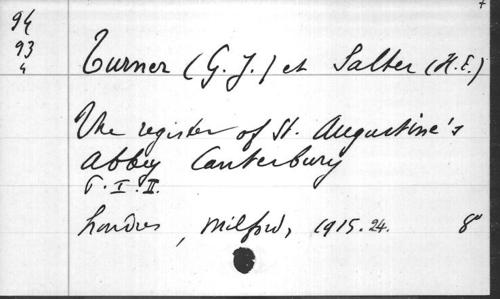 94
93
4
Turner (G. J.) et Salter (H. E.)
The register of St. Augustine's
Abbey Canterbury
T. I. II.
Londres, Milford, 1915. 24. 8°